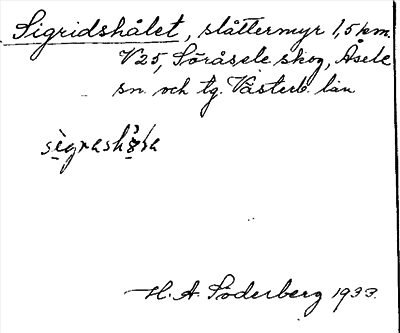 Sigridshålet, slåttermyr 1,5 km.
V25, Söråsele skog, Åsele
sn. och tg. Västerb. län
H. A. Söderberg 1933.